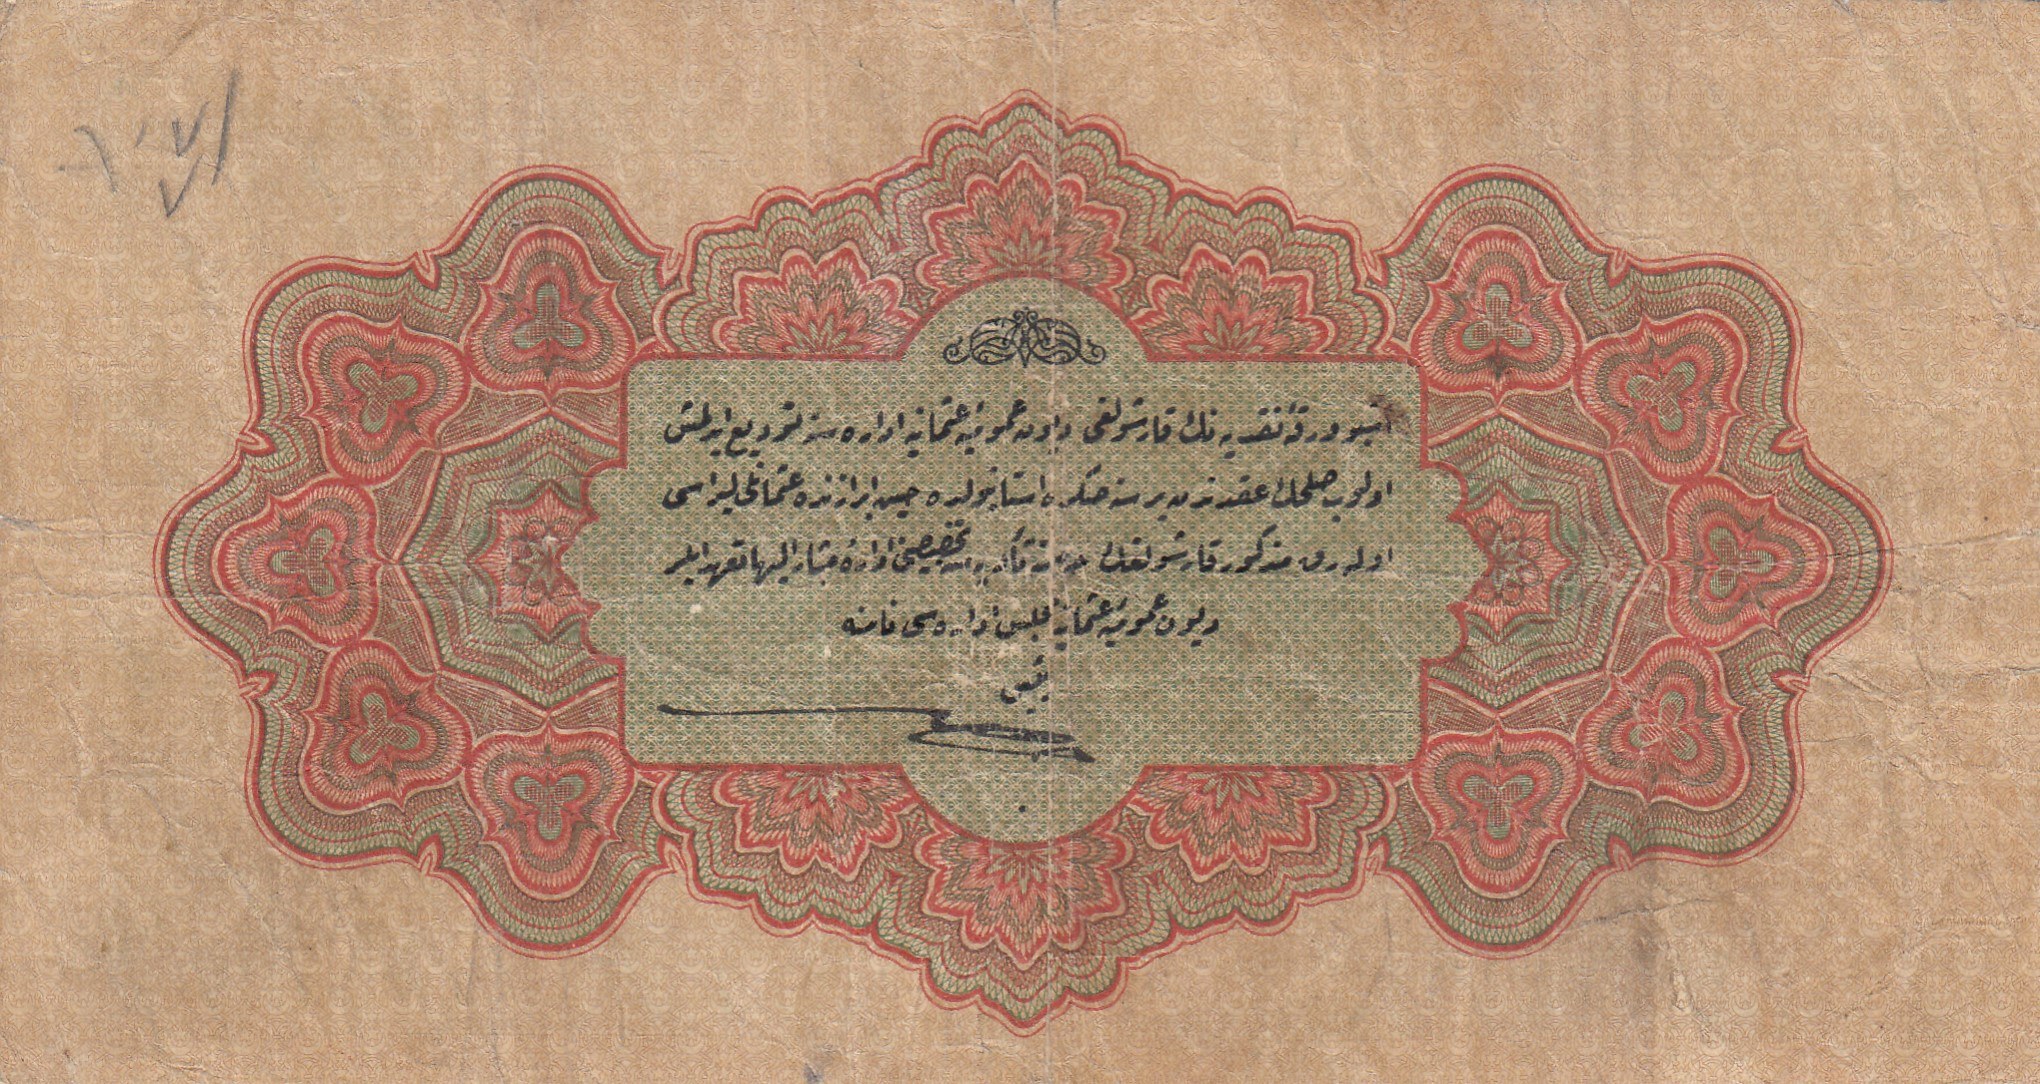 اشبو ورقهٔ نقدیه نك قارشولغی دیون عمومیهٔ عثمانیه اداره سنه تودیع ایدلمش
اولوب صلحك عقدندن بر سنه صكره استانبولده حین ابرازنده عثمانلی لیراسی
اوله رق مذكور قارشولغك تأدیه یه تخصیصنی ادارهٔ مشار الیها تعهد ایلر
دیون عمومیهٔ عثمانیه مجلس اداره سی نامنه